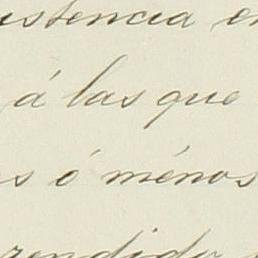 istencia en
á las que
s ó ménos
rendido